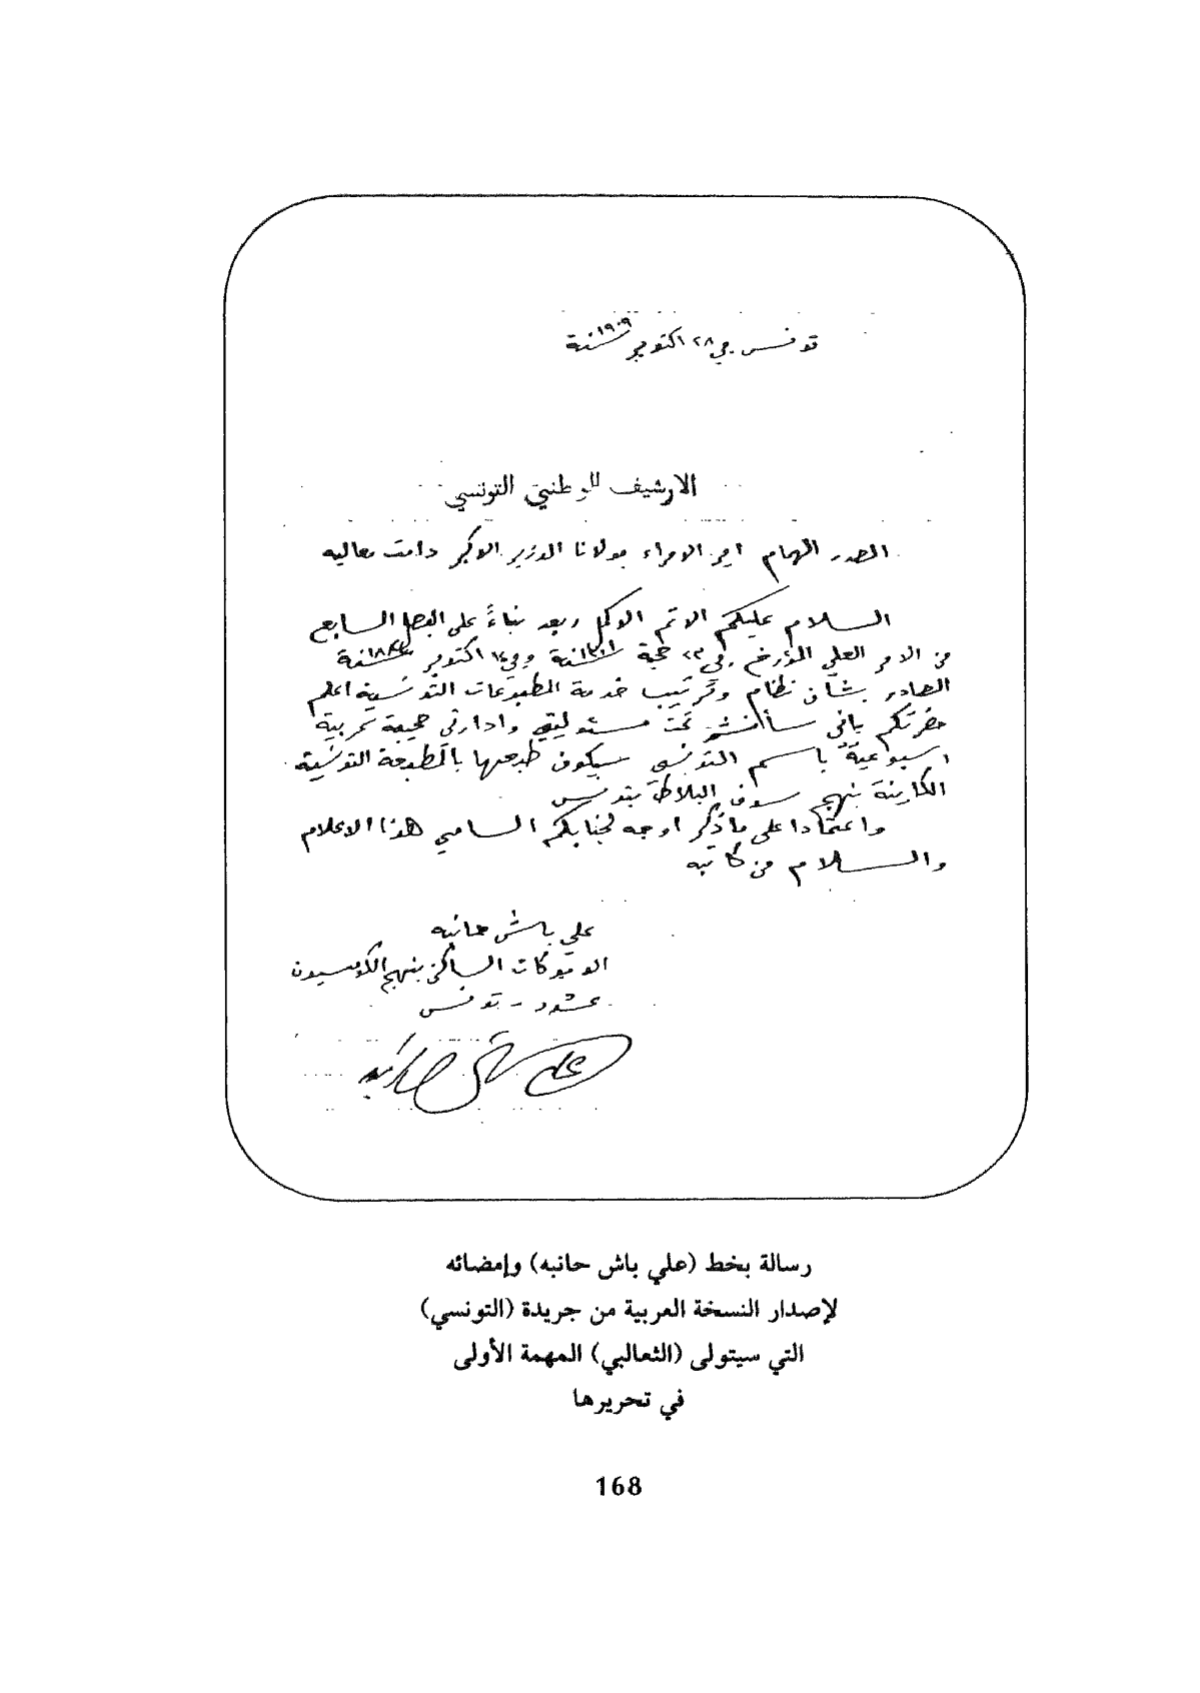 تونس في ٢٨ اكتوبر سنة ١٩٠٩
الارشيف الوطني التونسي
الصدر الهمام امير الامراء مولانا الوزير الاكبر دامت معاليه
السلام عليكم الاتم الاكمل وبعد بناءً على الفصل السابع
من الامر العلي المؤرخ في حجة سنة وفي ١٤ اكتوبر سنة
الصادر بشأن نظام وترتيب خدمة المطبوعات التونسية اعلم
حضرتكم باني سأنشر تحت مسئوليتي وادارتي صحيفة عربية
اسبوعية باسم التونسي سيكون طبعها بالمطبعة التونسية
الكاينة بنهج سوق البلاط بتونس
واعتمادا على ما ذكر اوجه لجنابكم السامي هذا الاعلام
والسلام من كاتبه
علي باش حانبه
الاوبوكات الساكن بنهج الكومسيون
عدد - تونس
علي باش حانبه
رسالة بخط (علي باش حانبه) وإمضائه
لإصدار النسخة العربية من جريدة (التونسي)
التي سيتولى (الثعالبي) المهمة الأولى
في تحريرها
168